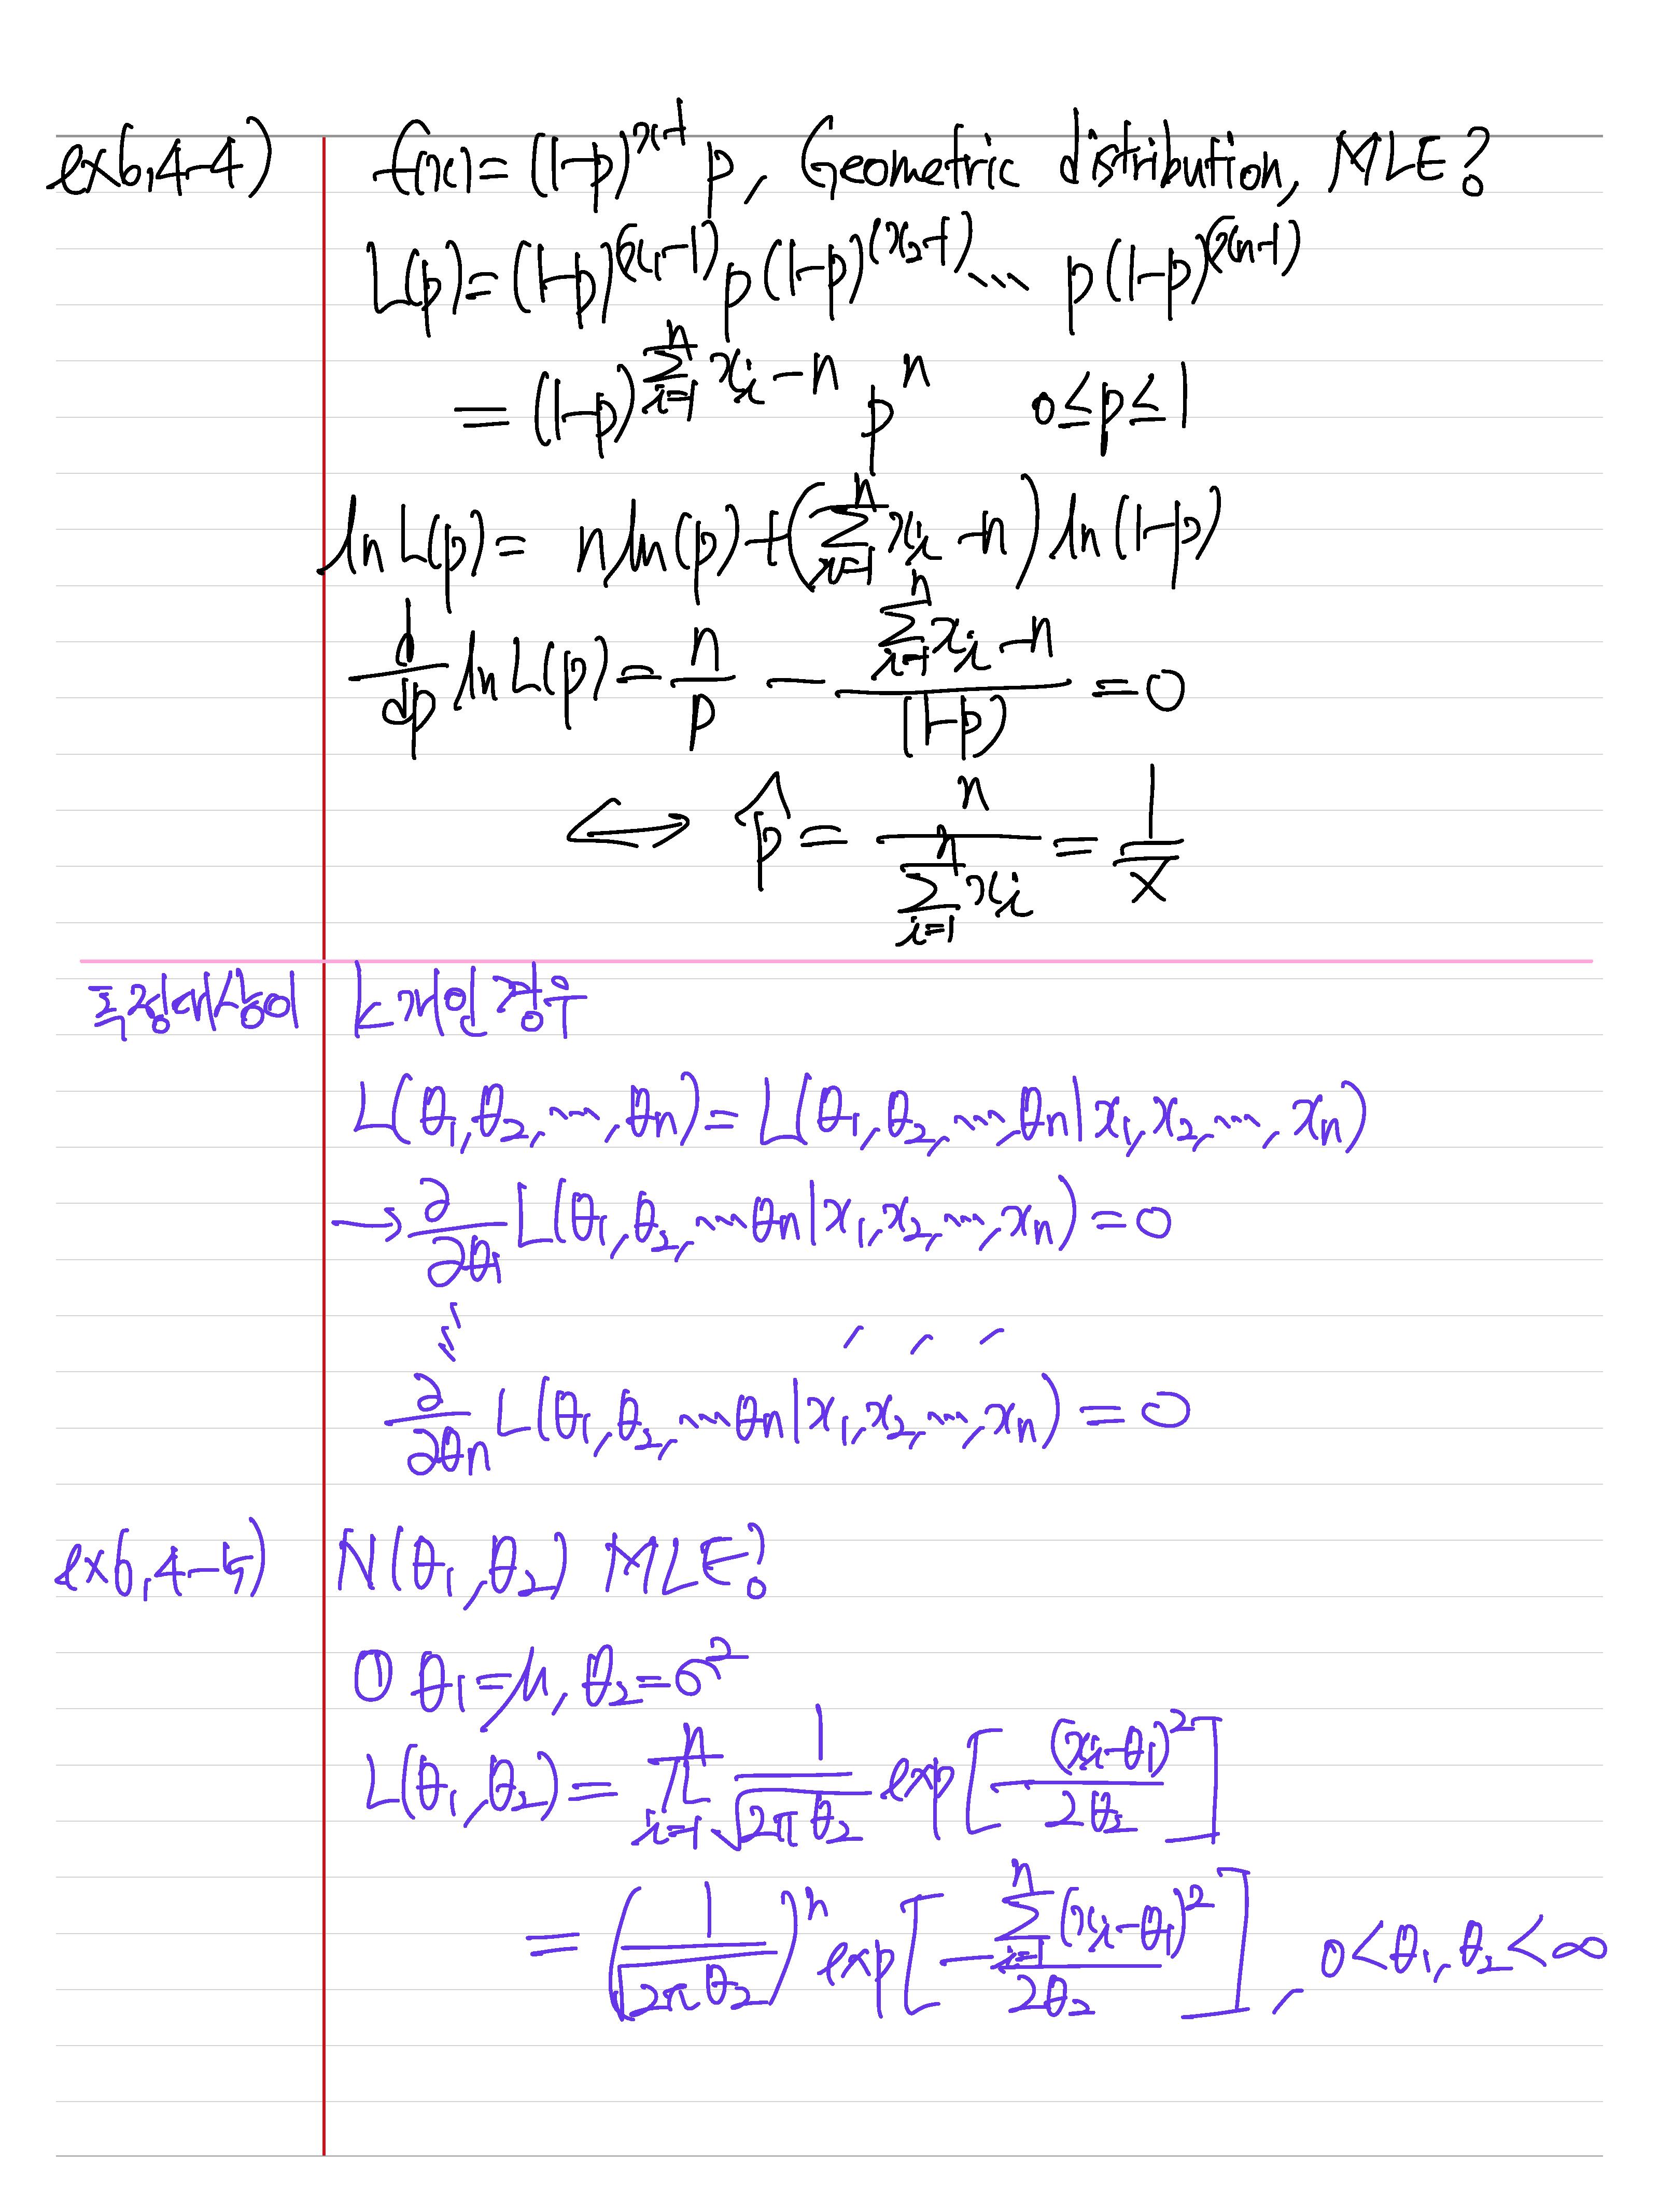 ex6.4-4) f(x)=(1-p)^{x-1} p, Geometric distribution, MLE?
L(p)=(1-p)^{(x₁-1)} p(1-p)^{(x₂-1)} ⋯ p(1-p)^{(xₙ-1)}
= (1-p)^{\sum_{i=1}^{n} x_i - n} p^n  0≤p≤1
ln L(p)= n ln(p)+(\sum_{x=1}^{n} x_i -n) ln(1-p)
\frac{d}{dp} ln L(p)= \frac{n}{p} - \frac{\sum_{i=1}^{n} x_i -n}{(1-p)} =0
⟺ \hat{p} = \frac{n}{\sum_{i=1}^{n} x_i} = \frac{1}{\bar{x}}
특정대상이 k개인 경우
L(θ₁,θ₂,⋯,θn)=L(θ₁,θ₂,⋯,θn|x₁,x₂,⋯,xn)
→ \frac{∂}{∂θ₁} L(θ₁,θ₂,⋯θn|x₁,x₂,⋯,xn)=0
⋮ ⋯
\frac{∂}{∂θn} L(θ₁,θ₂,⋯θn|x₁,x₂,⋯,xn)=0
ex6.4-5) N(θ₁,θ₂) MLE?
① θ₁=μ, θ₂=σ²
L(θ₁,θ₂)= \prod_{i=1}^{n} \frac{1}{\sqrt{2πθ₂}} exp[-\frac{(x_i-θ₁)²}{2θ₂}]
= (\frac{1}{\sqrt{2πθ₂}})^n exp[-\frac{\sum_{i=1}^{n}(x_i-θ₁)²}{2θ₂}], 0<θ₁,θ₂<∞